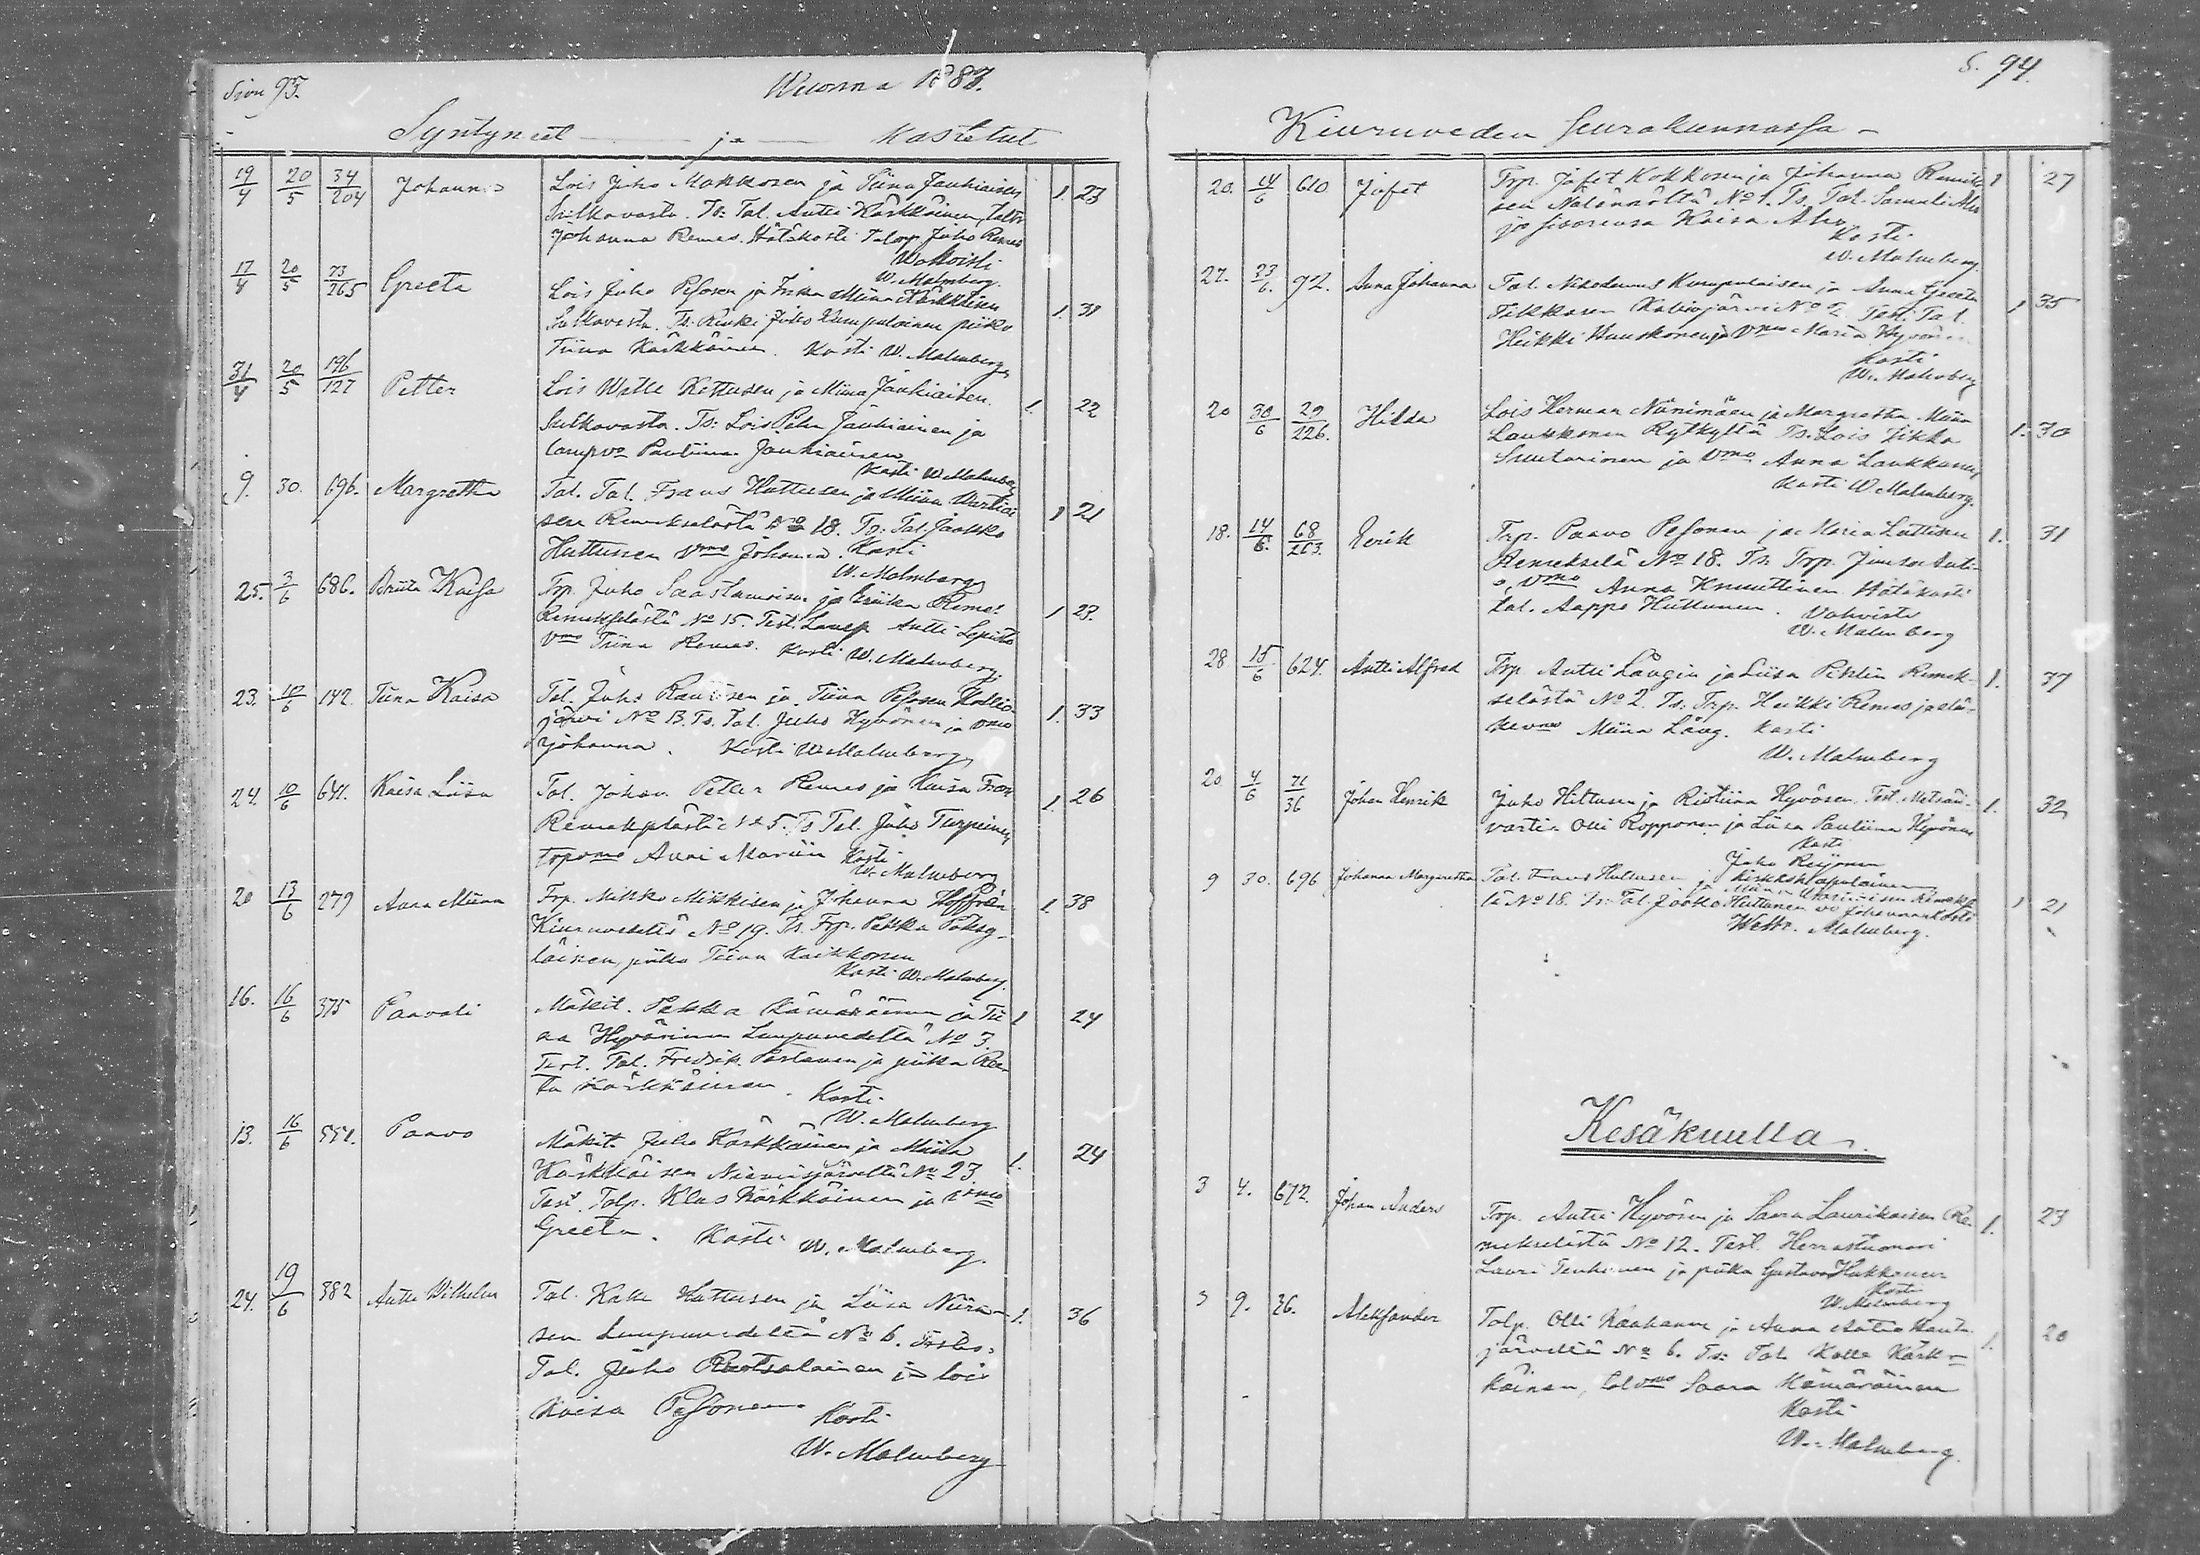 Sivu 93.
Wuonna 1887.
Syntyneet ja Kastetut
19/4 20/5 34/204 Johannes Lois Juho Makkosen ja Tiina Jauhiaisen 1. 23
Sulkavasta. Ts: Tal. Antti Kärkkäinen,
Johanna Remes. Hätäkasti Talonp Juho Remes
Wahvisti
W. Malmberg.
17/4 20/5 73/265 Greeta Lois Juho Pesosen ja Miina Kärkkäisen 1. 31
Sulkavasta. Ts: Renki Juho Kumpulainen piika
Tiina Kärkkäinen. Kasti W. Malmberg
31/4 20/5 196/127 Petter Lois Wille Kettusen ja Miina Jauhiaisen 1. 22
Sulkavasta. Ts: Lois Jauhiainen ja
Pauliina Jauhiainen
Kasti W. Malmberg
9. 30. 696. Margretha Tal. Tal. Frans Huttusen ja Miina 1 21
sen Remekselästä No 18. Ts: Tal. Jaakko
Huttunen vmo Johanna. Kasti
W. Malmberg
25. 3/6 686. Briita Kaisa Trp. Juho Saastamoisen ja Eriika Remes 1 23.
Remekselästä No 15. Test. Antti
vmo Tiina Remes. Kasti W. Malmberg
23. 10/6 142. Tiina Kaisa Tal. Juho Rautisen ja Tiina Pesosen Kallio- 1. 33
järvi No 13. Ts. Tal. Juho Hyvönen ja vmo
Johanna. Kasti W. Malmberg
24. 10/6 641. Kaisa Liisa Tal. Johan Petter Remes ja Kaisa 1. 26
Remekselästä No 5. Ts Tal. Juho Turpeinen,
trpvmo Anni Mariin Kasti
W. Malmberg
20 13/6 279 Anna Miina Trp. Mikko Mikkisen ja Johanna Hoffrén 1. 38
Kiuruvedeltä No 19. Ts. Trp. Pekka
läinen, piika Tiina Kaikkonen
Kasti W. Malmberg.
16. 16/6 375 Paavali Mäkit. Pekka Kämäräinen ja Tii 1 24
na Hyvärinen Luupuvedeltä No 3.
Test. Tal. Fredrik Partanen ja piika Ree-
ta Kärkkäinen. Kasti
W. Malmberg
13. 16/6 551. Paavo Mäkit. Juho Kärkkäinen ja Miina 1. 24
Kärkkäisen Niemisjärveltä No 23.
Test. Talp. Klas Kärkkäinen ja vmo
Greeta. Kasti W. Malmberg.
24. 19/6 382 Antti Wilhelm Tal. Kalle Huttusen ja Liisa Niira- 1. 36
sen Luupuvedeltä No 6. Tests:
Tal. Juho Ruotsalainen ja lois
Kaisa Pesonen. Kasti
W. Malmberg
S. 94.
Kiuruveden seurakunnassa
20. 14/6 610 Jafet Trp. Jafet Kokkosen ja Johanna 1 27
sen Näläntöltä No 1. Ts. Tal. Samuli Aho
ja sisarensa Kaisa Aho
Kasti
W. Malmberg.
27. 23/6. 92. Anna Johanna Tal. Nikodemus Kumpulaisen ja Anna Greeta 1 35
Tikkasen Kalliojärvi No 2. Test. Tal.
Heikki Huuskonen ja vmo Maria Hyvönen
Kasti
W. Malmberg
20 30/6 29/226. Hilda Lois Herman Niinimäen ja Margretha Miina 1. 30
Laukkonen Rytkyltä Ts. Lois Jikka
Suutarinen ja vmo Anna Laukkanen
Kasti W. Malmberg.
18. 14/6. 68/263. Eerik Trp. Paavo Pesonen ja Maria Luttisen 1. 31
Remekselä No 18. Ts. Trp. Antti-
, vmo Anna Knuuttinen Hätäkasti
tal. Aappo Huttunen. Vahvisti
W. Malmberg
28 15/6 624. Antti Alfred Trp. Antti Lång'in ja Liisa Remek- 1. 37
selästä No 2. Ts: Trp. Heikki Remes ja elä-
kevmo Miina Lång. Kasti
W. Malmberg
20 4/6 71/36 Johan Henrik Juho Hiltusen ja Ristiina Hyvösen. Test. Metsän- 1. 32
vartia Olli Ropponen ja Liisa Pauliina Hyvönen
Kasti
Juho Reijonen
kirkkoh.apulainen
9 30. 696 Johanna Margaretha Tal. Frans Huttusen ja Miina Remekse 1 21
lä No 18. Ts: Tal. Jaakko Huttunen vo Johanna Kasti
Malmberg.
Kesäkuulla.
3 4. 672. Johan Anders Trp. Antti Hyvösen ja Saara Laurikaisen Re- 1. 23
mekselästä No 12. Test. Herrastuomari
Lauri Tenhunen ja piika Gustava Hukkanen
Kasti
W. Malmberg
3 9. 36. Aleksander Talp. Olli Kauhanen ja Anna Hautu 1. 20
järveltä No 6. Ts: Tal. Kalle Kärk-
käinen, talvmo Saara Kämäräinen
Kasti
W. Malmberg.